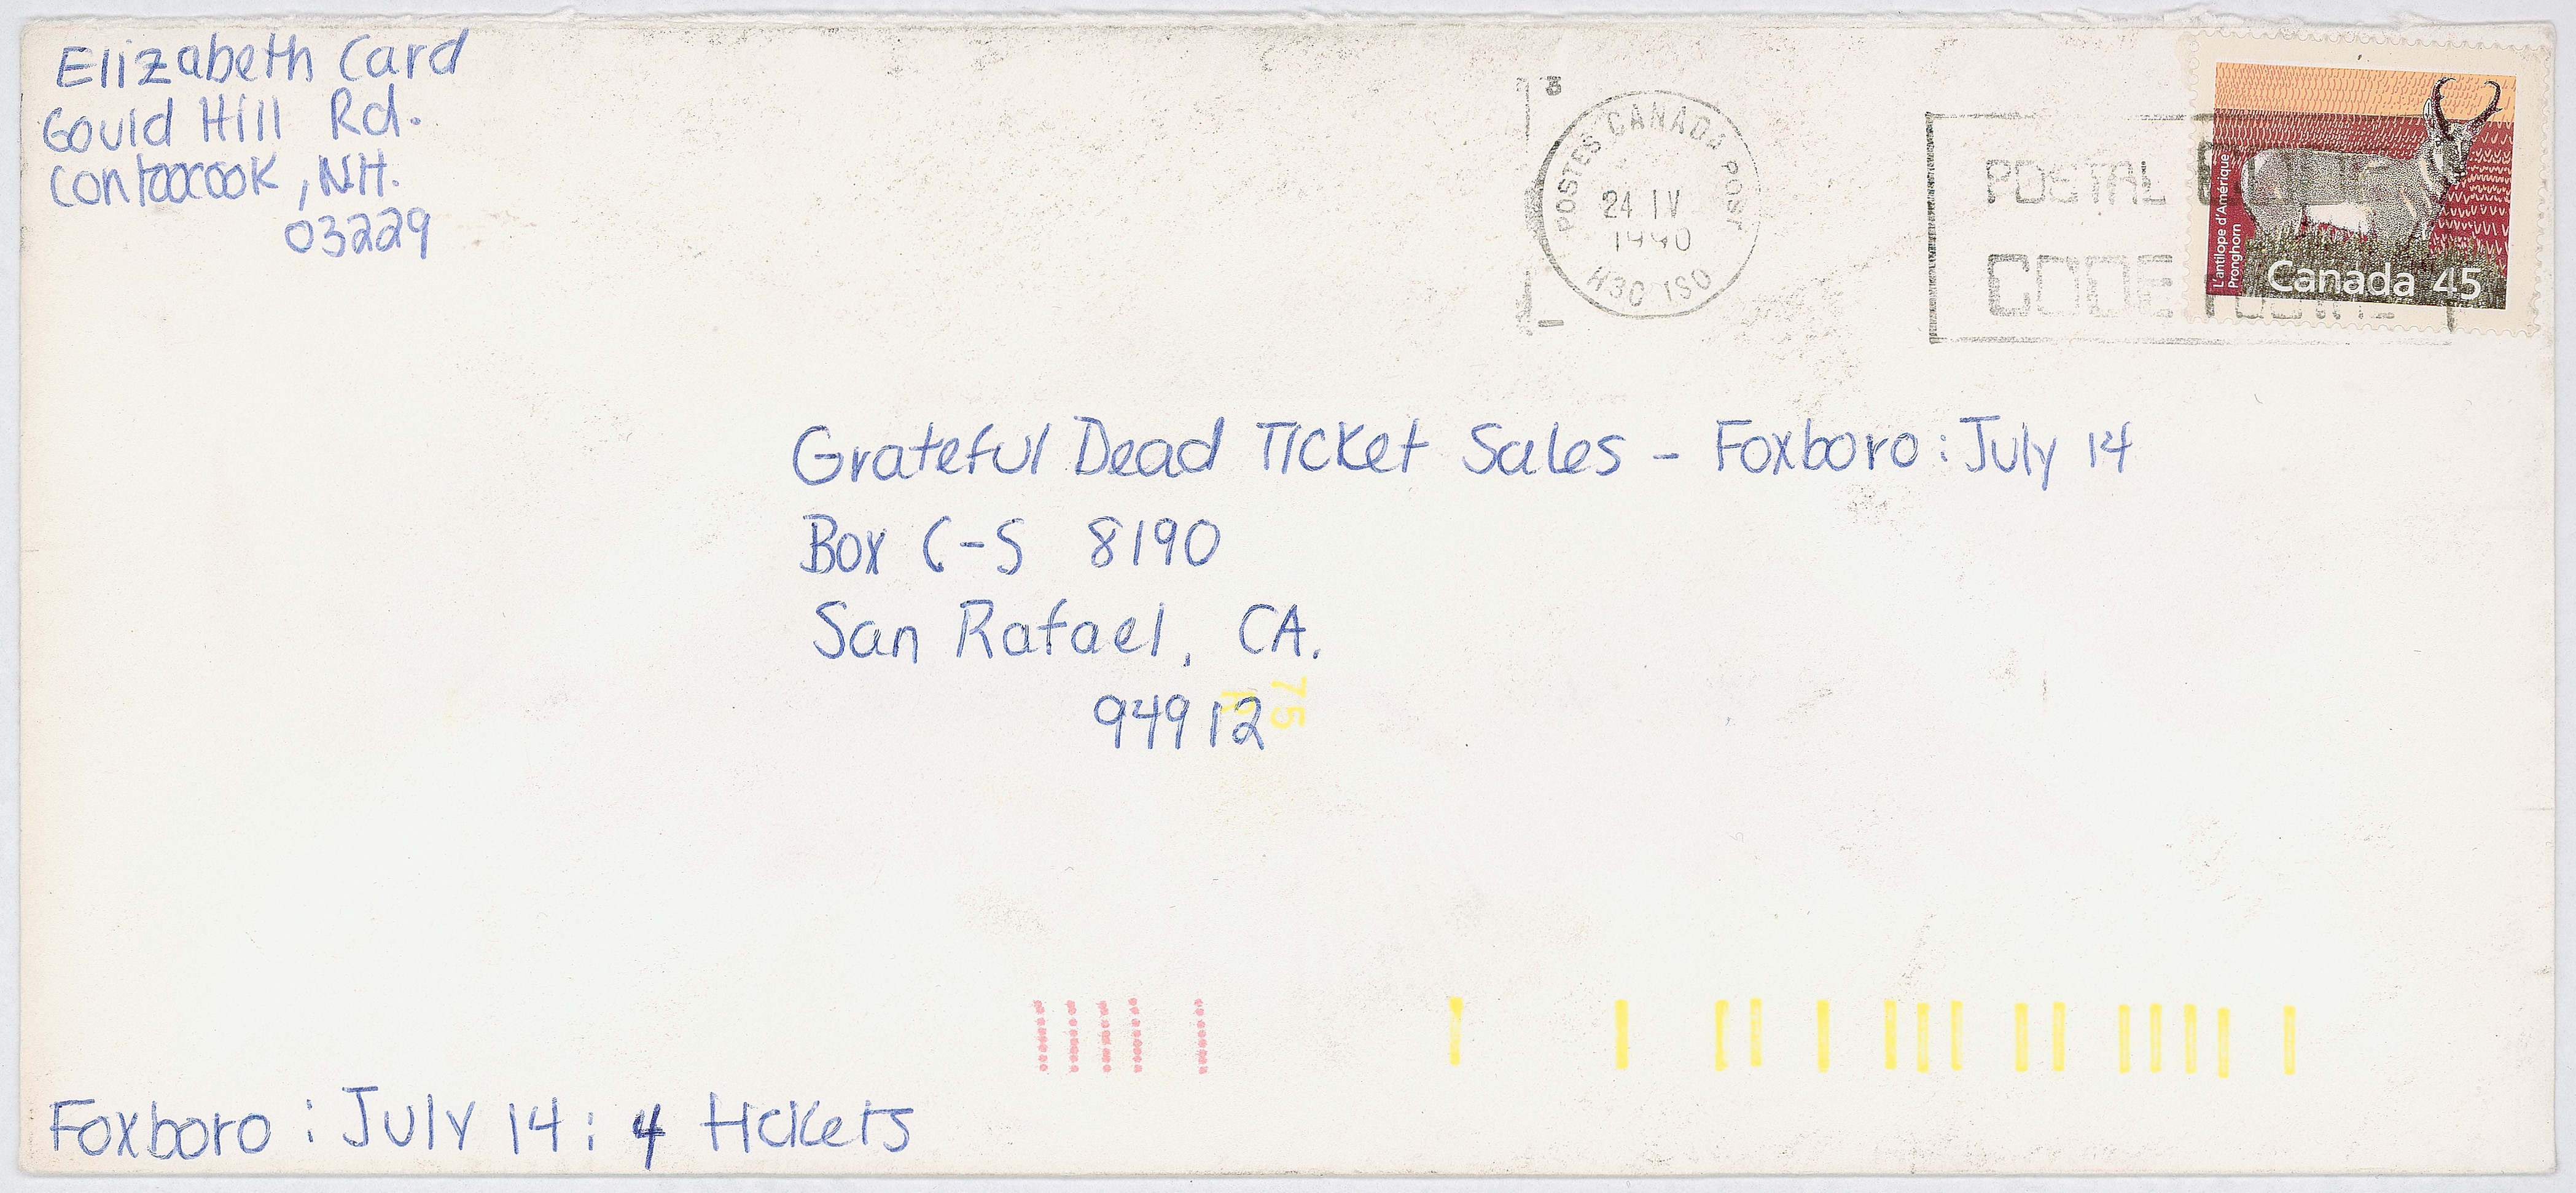 Elizabeth Card
Gould Hill Rd.
Contoocook, NH.
03229
POSTES CANADA POST
24 IV
1990
H3C 1S0
POSTAL
CODE POSTAL
L'antilope d'Amérique
Pronghorn
Canada 45
Grateful Dead Ticket Sales - Foxboro: July 14
Box C-S 8190
San Rafael, CA.
94912
75
Foxboro: July 14: 4 tickets